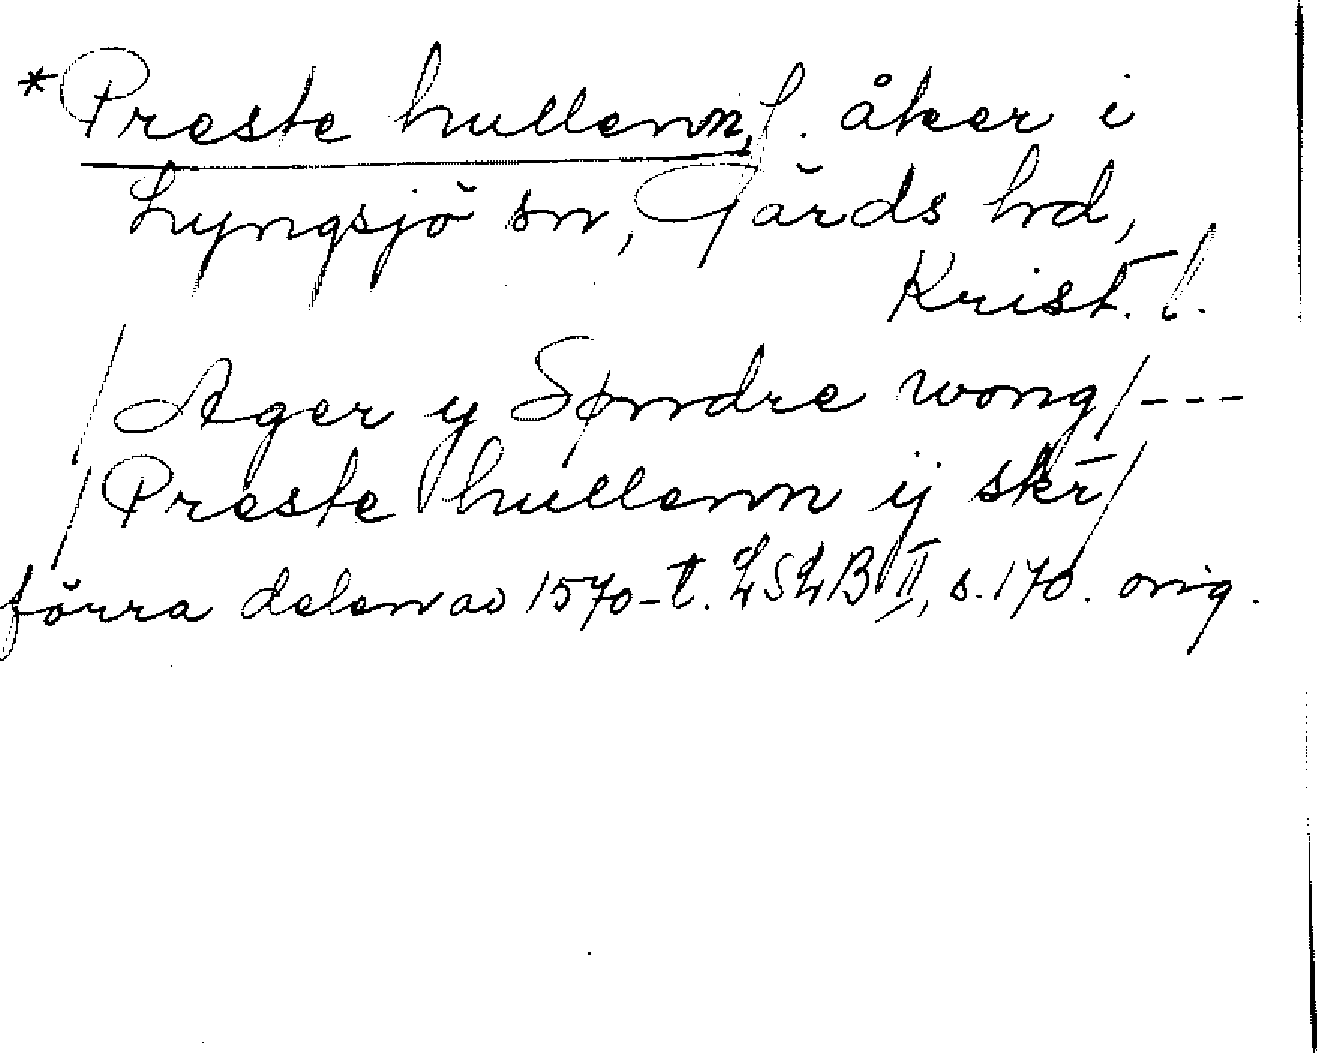 *Preste hullenn, f. åker i
Lyngsjö sn, Gärds hd,
Krist. l.
/Ager y Søndre wong/---
/Preste hullenn ij skr̄/
förra delen av 1570-t. LSLB II, s. 170. orig.